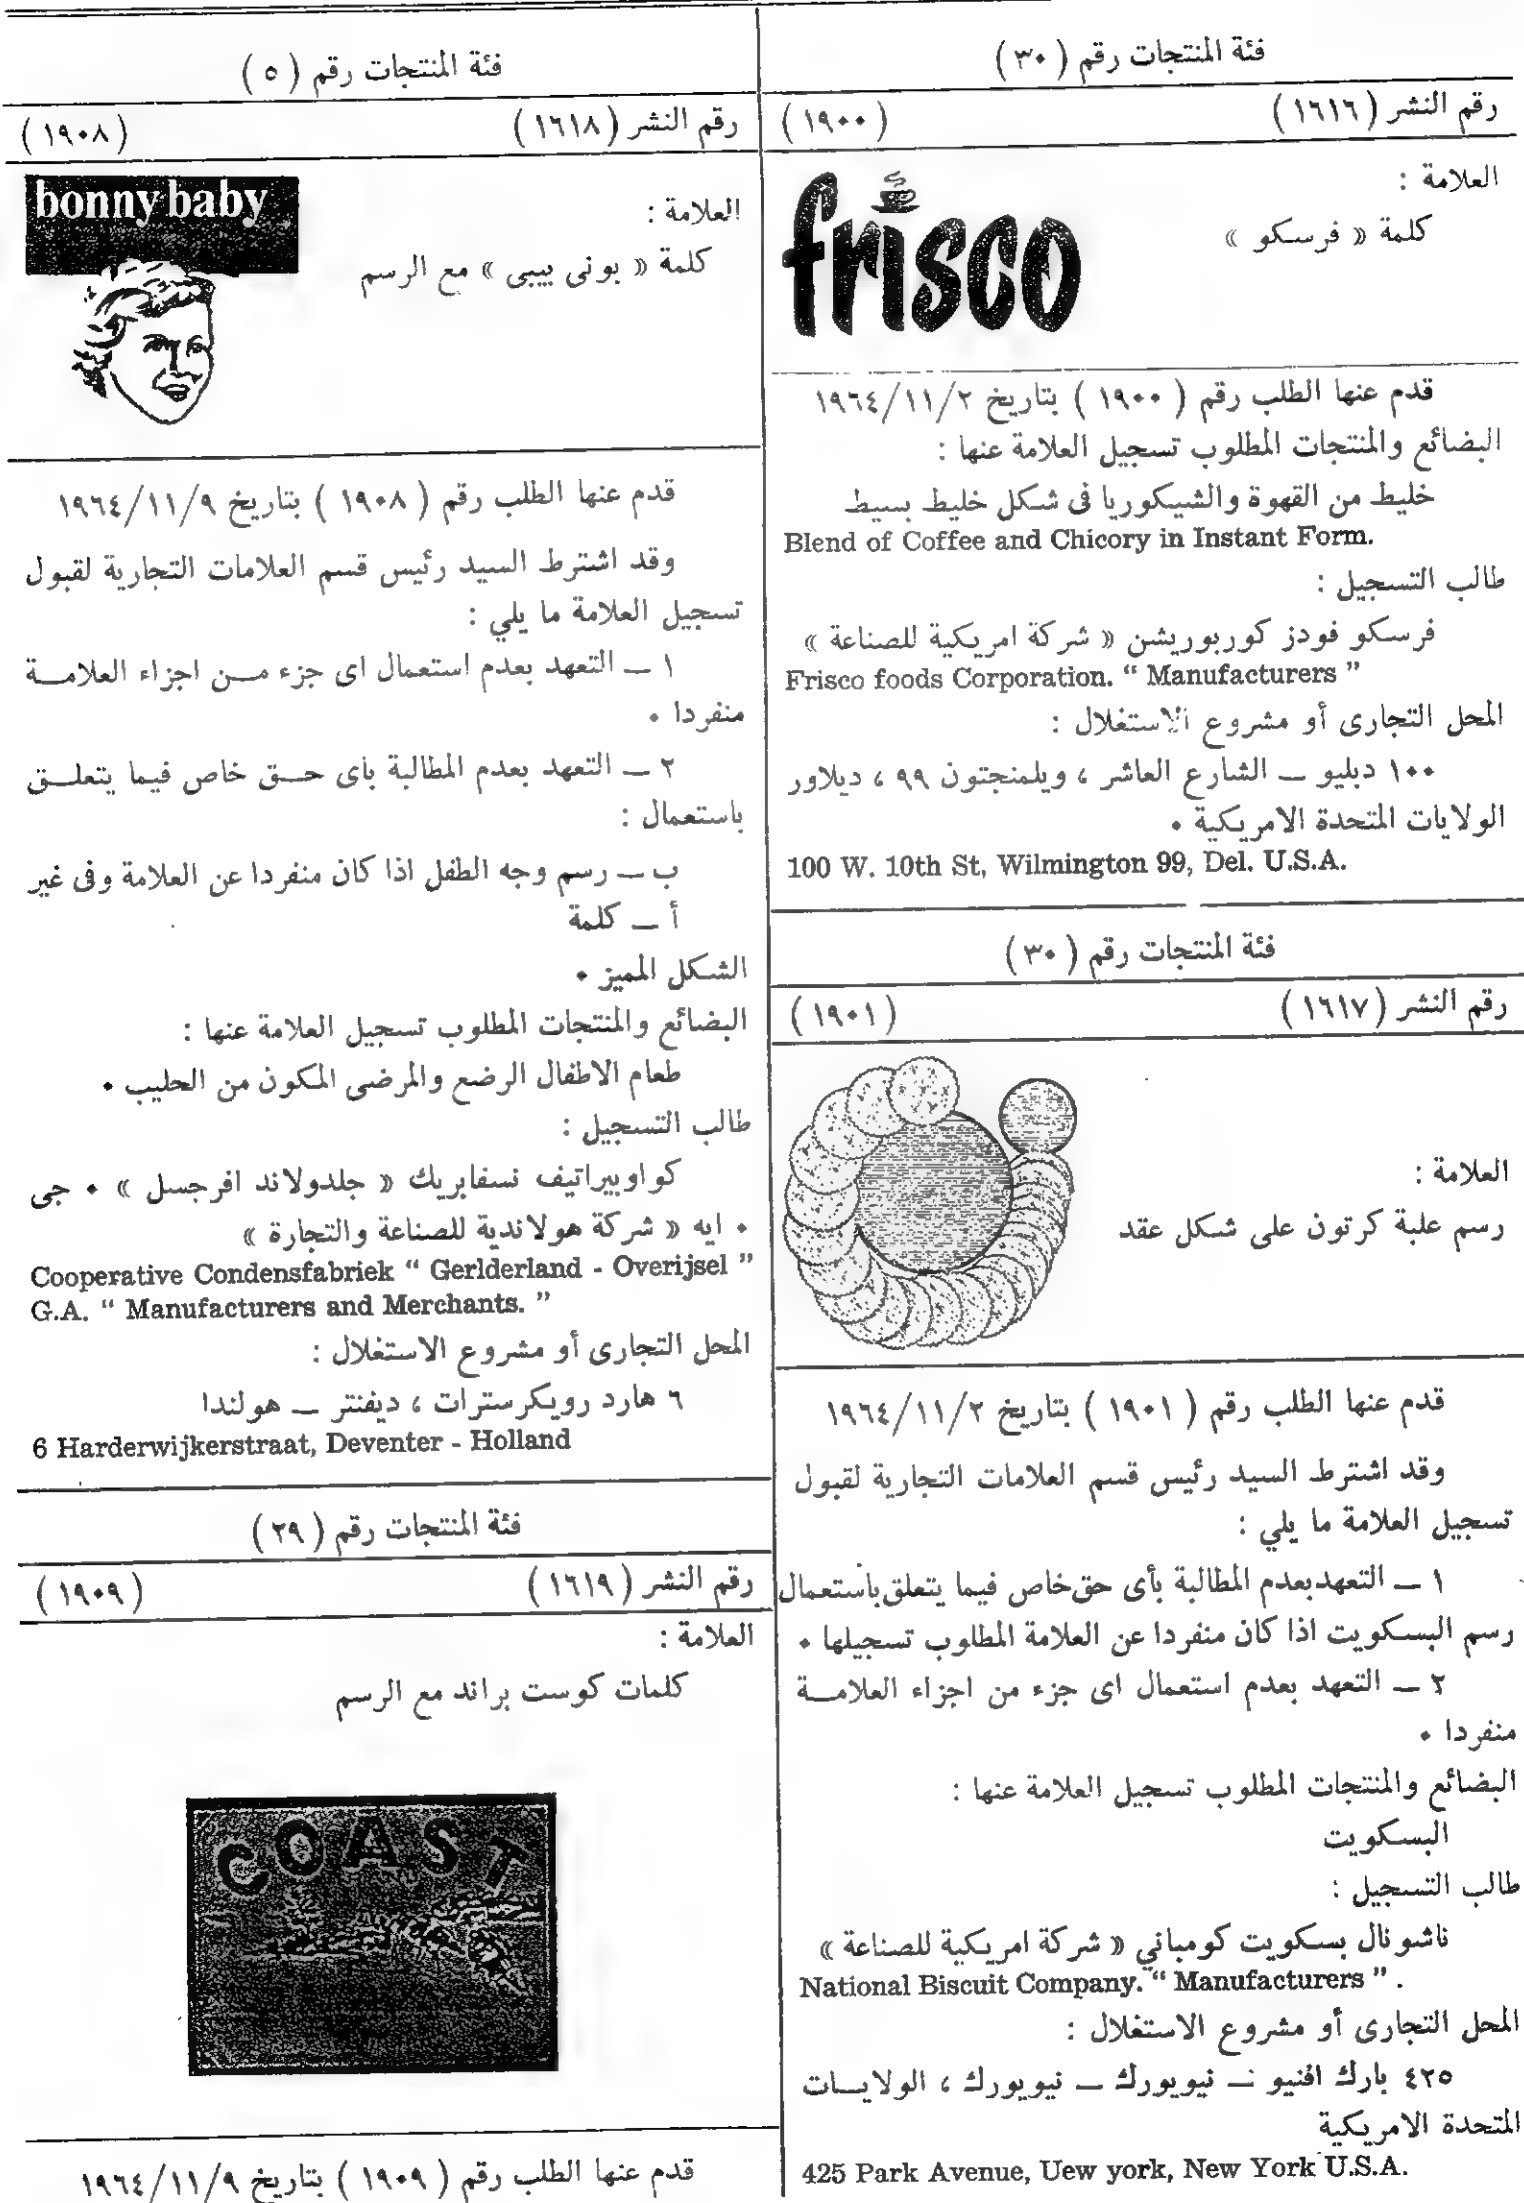 فئة المنتجات رقم ( ٣٠ )
رقم النشر ( ١٦١٦ ) ( ١٩٠٠ )
العلامة :
كلمة « فرسكو »
frisco
قدم عنها الطلب رقم ( ١٩٠٠ ) بتاريخ ١٩٦٤/١١/٢
البضائع والمنتجات المطلوب تسجيل العلامة عنها :
خليط من القهوة والشيكوريا فى شكل خليط بسيط
Blend of Coffee and Chicory in Instant Form.
طالب التسجيل :
فرسكو فودز كوربوريشن « شركة امريكية للصناعة »
Frisco foods Corporation. “ Manufacturers ”
المحل التجارى أو مشروع الاستغلال :
١٠٠ دبليو ــ الشارع العاشر ، ويلمنجتون ٩٩ ، ديلاور
الولايات المتحدة الامريكية .
100 W. 10th St, Wilmington 99, Del. U.S.A.
فئة المنتجات رقم ( ٣٠ )
رقم النشر ( ١٦١٧ ) ( ١٩٠١ )
العلامة :
رسم علبة كرتون على شكل عقد
قدم عنها الطلب رقم ( ١٩٠١ ) بتاريخ ١٩٦٤/١١/٢
وقد اشترط السيد رئيس قسم العلامات التجارية لقبول
تسجيل العلامة ما يلي :
١ ــ التعهد بعدم المطالبة بأى حق خاص فيما يتعلق باستعمال
رسم البسكويت اذا كان منفردا عن العلامة المطلوب تسجيلها .
٢ ــ التعهد بعدم استعمال اى جزء من اجزاء العلامــة
منفردا .
البضائع والمنتجات المطلوب تسجيل العلامة عنها :
البسكويت
طالب التسجيل :
ناشونال بسكويت كومباني « شركة امريكية للصناعة »
National Biscuit Company. “ Manufacturers ” .
المحل التجارى أو مشروع الاستغلال :
٤٢٥ بارك افنيو ــ نيويورك ــ نيويورك ، الولايــات
المتحدة الامريكية
425 Park Avenue, Uew york, New York U.S.A.
فئة المنتجات رقم ( ٥ )
رقم النشر ( ١٦١٨ ) ( ١٩٠٨ )
bonny baby
العلامة :
كلمة « بونى بيبى » مع الرسم
قدم عنها الطلب رقم ( ١٩٠٨ ) بتاريخ ١٩٦٤/١١/٩
وقد اشترط السيد رئيس قسم العلامات التجارية لقبول
تسجيل العلامة ما يلي :
١ ــ التعهد بعدم استعمال اى جزء مــن اجزاء العلامــة
منفردا .
٢ ــ التعهد بعدم المطالبة باى حــق خاص فيما يتعلــق
باستعمال :
ب ــ رسم وجه الطفل اذا كان منفردا عن العلامة وفى غير
أ ــ كلمة
الشكل المميز .
البضائع والمنتجات المطلوب تسجيل العلامة عنها :
طعام الاطفال الرضع والمرضى المكون من الحليب .
طالب التسجيل :
كواوبيراتيف نسفابريك « جلدولاند افرجسل » . جى
. ايه « شركة هولاندية للصناعة والتجارة »
Cooperative Condensfabriek “ Gerlderland - Overijsel ”
G.A. “ Manufacturers and Merchants. ”
المحل التجارى أو مشروع الاستغلال :
٦ هارد رويكرسترات ، ديفنتر ــ هولندا
6 Harderwijkerstraat, Deventer - Holland
فئة المنتجات رقم ( ٢٩ )
رقم النشر ( ١٦١٩ ) ( ١٩٠٩ )
العلامة :
كلمات كوست براند مع الرسم
COAST
قدم عنها الطلب رقم ( ١٩٠٩ ) بتاريخ ١٩٦٤/١١/٩